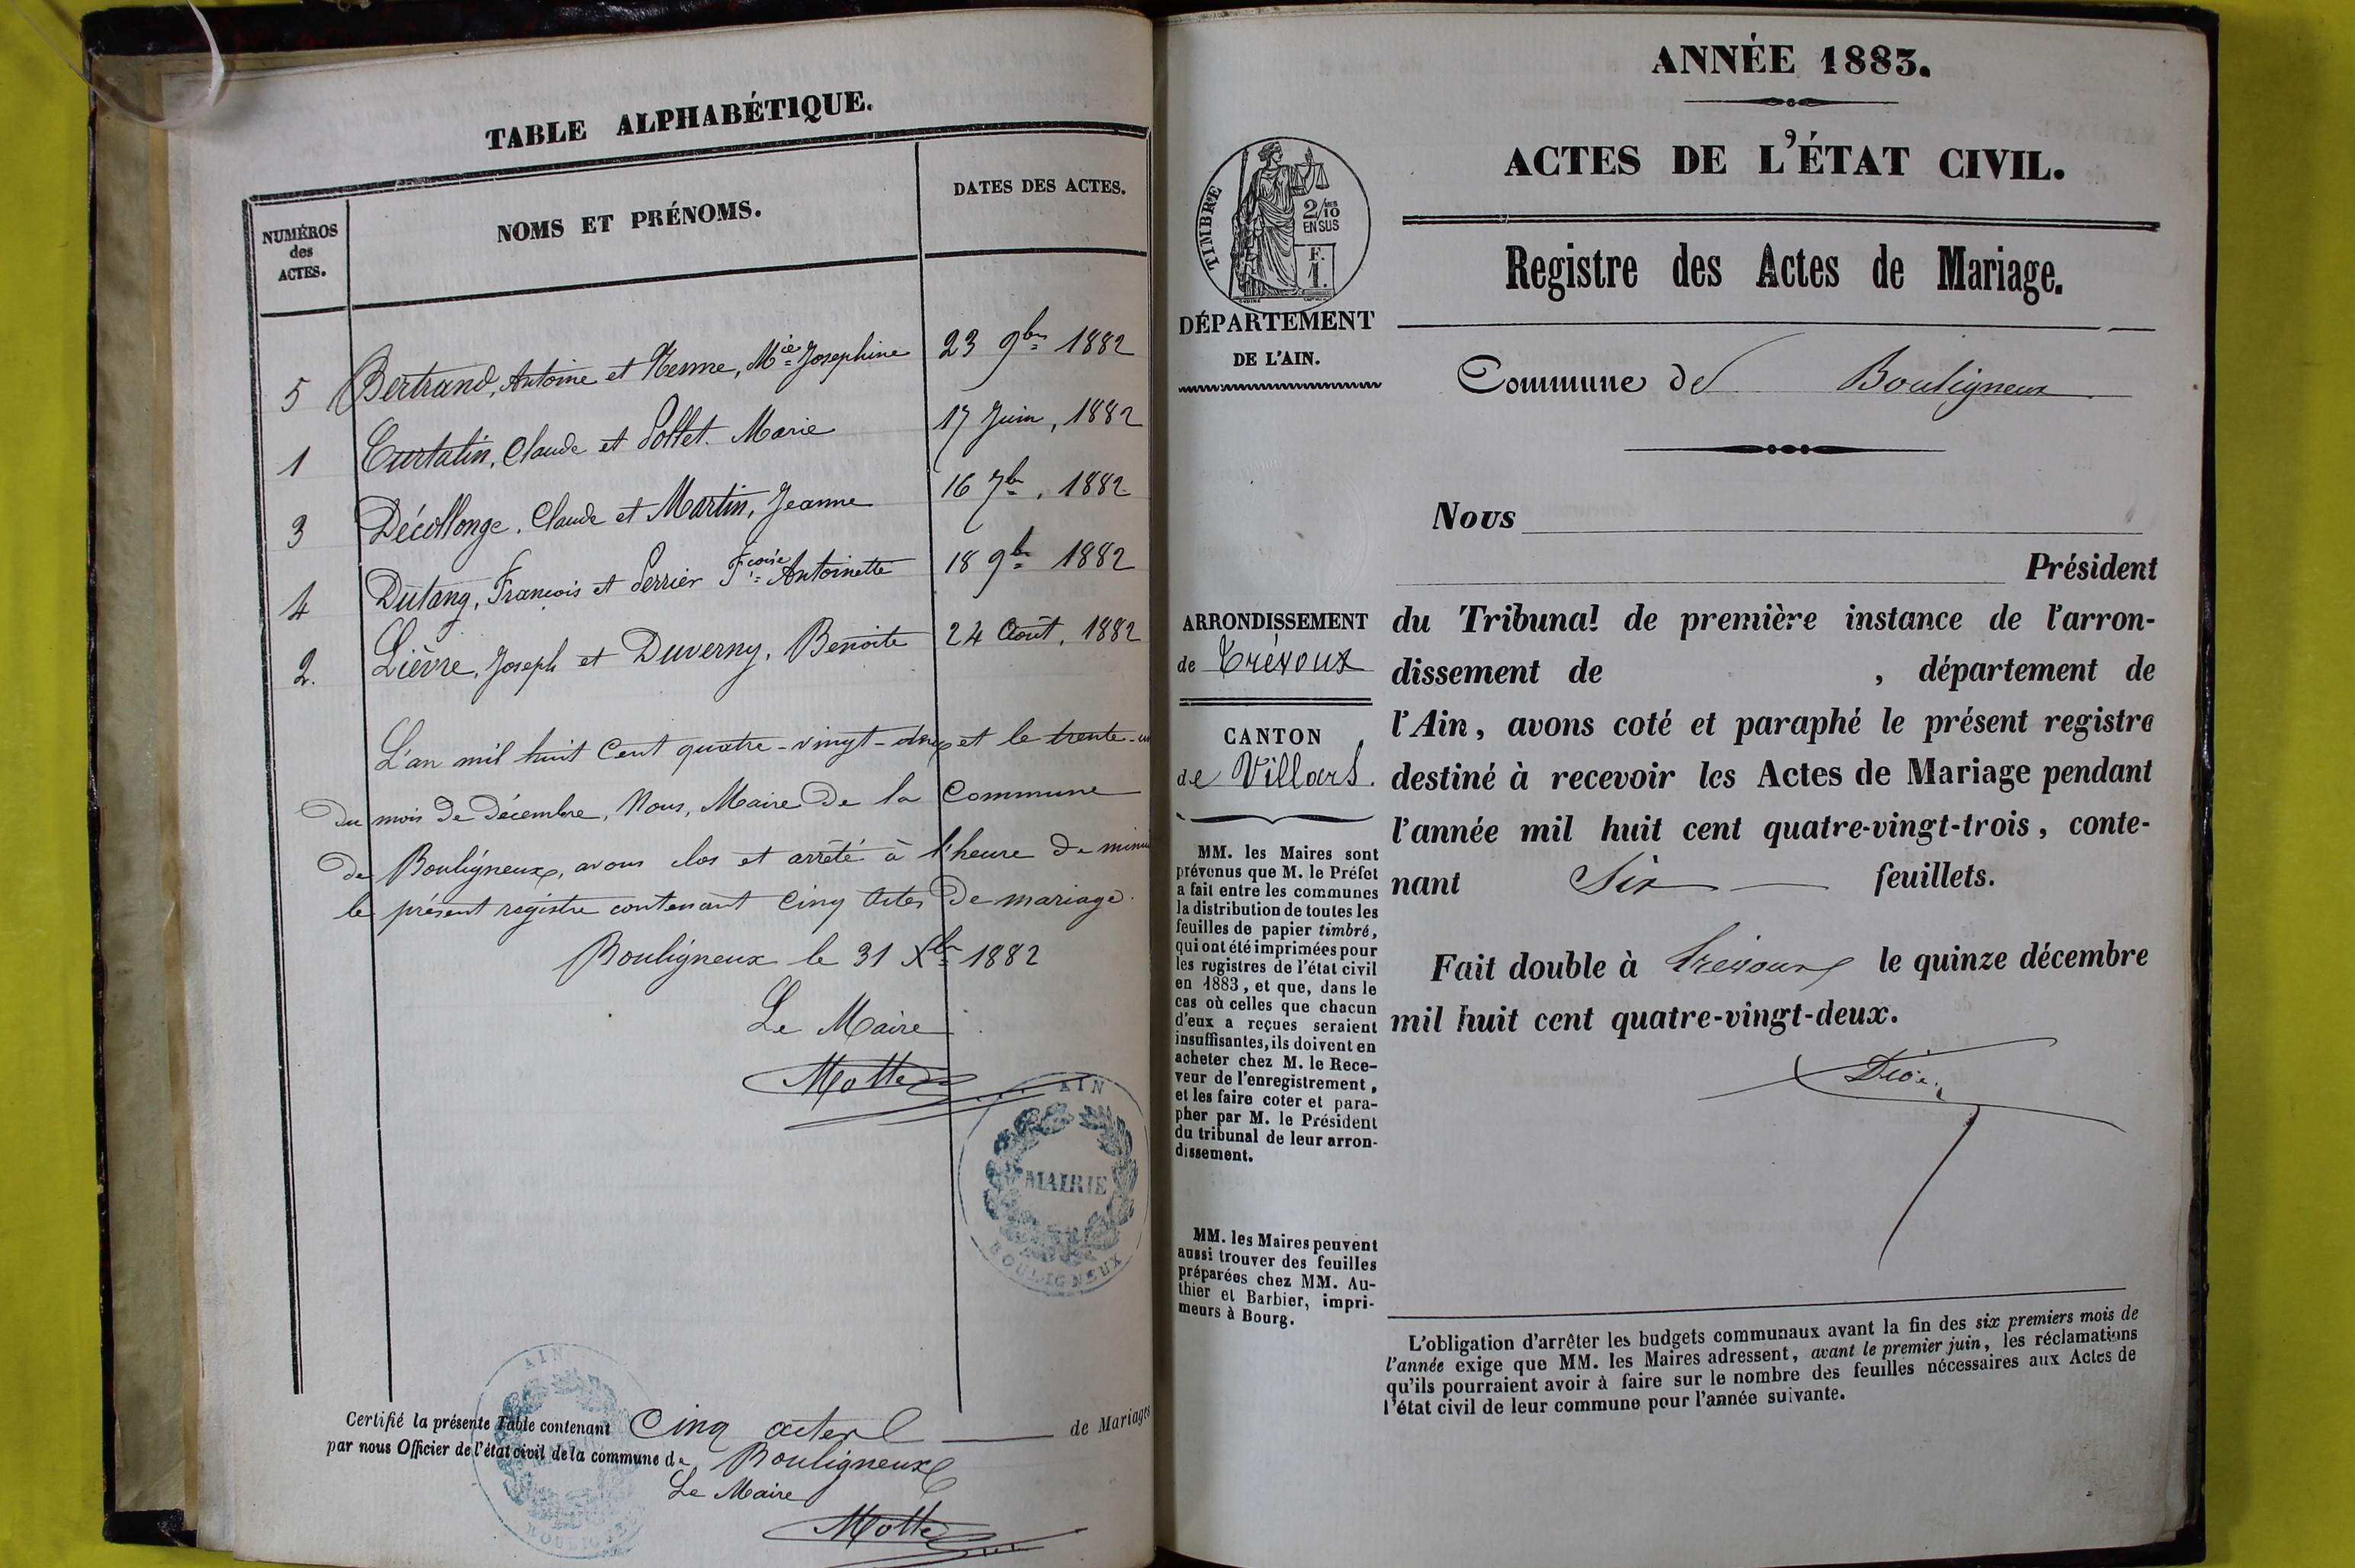 TABLE ALPHABÉTIQUE.
NUMÉROS
des
ACTES.
NOMS ET PRÉNOMS.
DATES DES ACTES.
5 Bertrand, Antoine et Mie Josephine 23 9bre 1882
1 Curtalin, Claude et Pollet Marie 17 Juin, 1882
3 Décollonge, Claude et Martin, Jeanne 16 7bre, 1882
4 Dutang, François et Perrier Fcoise Antoinette 18 9bre 1882
2. Lièvre, Joseph et Duverny, Benoite 24 Août, 1882
L'an mil huit Cent quatre-vingt-deux et le trente-un
du mois de Décembre, Nous, Maire de la Commune
de Bouligneux, avons clos et arrêté à l'heure de minuit
le présent registre contenant Cinq Actes de mariage.
Bouligneux le 31 Xbre 1882
Le Maire
Motte
AIN
MAIRIE
BOULIGNEUX
Certifié la présente Table contenant Cinq actes de Mariages
par nous Officier de l'état civil de la commune de Bouligneux
Le Maire
Motte
AIN
BOULIGNEUX
ANNÉE 1883.
ACTES DE L'ÉTAT CIVIL.
Registre des Actes de Mariage.
TIMBRE
2/10 mes
EN SUS
F.
1.
DÉPARTEMENT
DE L'AIN.
Commune de Bouligneux
Nous
Président
ARRONDISSEMENT
de Trévoux
CANTON
de Villars.
du Tribunal de première instance de l'arron-
dissement de , département de
l'Ain, avons coté et paraphé le présent registre
destiné à recevoir les Actes de Mariage pendant
l'année mil huit cent quatre-vingt-trois, conte-
nant Six feuillets.
Fait double à Trévoux le quinze décembre
mil huit cent quatre-vingt-deux.
MM. les Maires sont
prévenus que M. le Préfet
a fait entre les communes
la distribution de toutes les
feuilles de papier timbré,
qui ont été imprimées pour
les registres de l'état civil
en 1883, et que, dans le
cas où celles que chacun
d'eux a reçues seraient
insuffisantes, ils doivent en
acheter chez M. le Rece-
veur de l'enregistrement,
et les faire coter et para-
pher par M. le Président
du tribunal de leur arron-
dissement.
MM. les Maires peuvent
aussi trouver des feuilles
préparées chez MM. Au-
thier et Barbier, impri-
meurs à Bourg.
L'obligation d'arrêter les budgets communaux avant la fin des six premiers mois de
l'année exige que MM. les Maires adressent, avant le premier juin, les réclamations
qu'ils pourraient avoir à faire sur le nombre des feuilles nécessaires aux Actes de
l'état civil de leur commune pour l'année suivante.